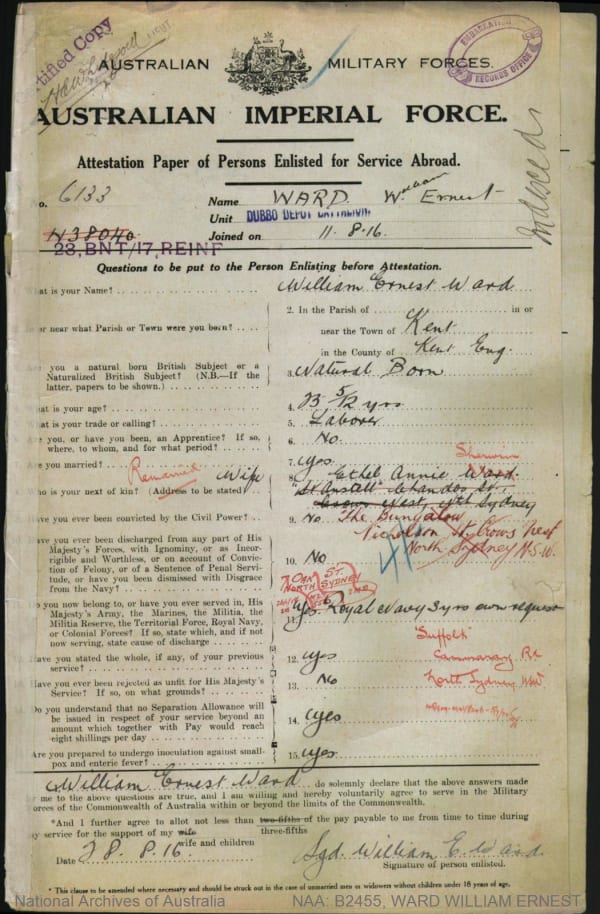 Certified Copy
LIEUT.
AUSTRALIAN MILITARY FORCES.
RECORDS OFFICE
AUSTRALIAN IMPERIAL FORCE.
Attestation Paper of Persons Enlisted for Service Abroad.
o. 6133
Name WARD. William Ernest
Unit DUBBO DEPOT BATTALION
N38040
Joined on 11.8.16.
23, BNT/17, REINF
Questions to be put to the Person Enlisting before Attestation.
at is your Name? William Ernest Ward
2. In the Parish of in or
or near what Parish or Town were you born? near the Town of Kent
in the County of Kent Eng.
you a natural born British Subject or a
Naturalized British Subject? (N.B.—If the
latter, papers to be shown.) 3. Natural Born
at is your age? 4. 23 5/12 yrs
at is your trade or calling? 5. Laborer
you, or have you been, an Apprentice? If so,
where, to whom, and for what period? 6. No.
e you married? 7. yes
Remarried Wife Sherwin
8. Ethel Annie Ward.
ho is your next of kin? (Address to be stated) "St Anstell" Chandos St,
Crows Nest, Nth Sydney
ave you ever been convicted by the Civil Power? 9. No The Bungalow
Nicholson St, Crows Nest
North Sydney N.S.W.
ave you ever been discharged from any part of His
Majesty's Forces, with Ignominy, or as Incor-
rigible and Worthless, or on account of Convic-
tion of Felony, or of a Sentence of Penal Servi-
tude, or have you been dismissed with Disgrace
from the Navy? 10. No
7 OAK ST.
NORTH SYDNEY
o you now belong to, or have you ever served in, His
Majesty's Army, the Marines, the Militia, the
Militia Reserve, the Territorial Force, Royal Navy,
or Colonial Forces? If so, state which, and if not
now serving, state cause of discharge 11. yes Royal Navy 3 yrs own request
"Suffolk"
Cammaray Rd
North Sydney NSW
ave you stated the whole, if any, of your previous
service? 12. yes
ave you ever been rejected as unfit for His Majesty's
Service? If so, on what grounds? 13. No
Do you understand that no Separation Allowance will
be issued in respect of your service beyond an
amount which together with Pay would reach
eight shillings per day 14. yes
Are you prepared to undergo inoculation against small-
pox and enteric fever? 15. yes
William Ernest Ward do solemnly declare that the above answers made
me to the above questions are true, and I am willing and hereby voluntarily agree to serve in the Military
orces of the Commonwealth of Australia within or beyond the limits of the Commonwealth.
*And I further agree to allot not less than two-fifths of the pay payable to me from time to time during
three-fifths
y service for the support of my wife
wife and children
Date 28.8.16. Sgd. William E. Ward.
Signature of person enlisted.
* This clause to be amended where necessary and should be struck out in the case of unmarried men or widowers without children under 18 years of age.
National Archives of Australia NAA: B2455, WARD WILLIAM ERNEST